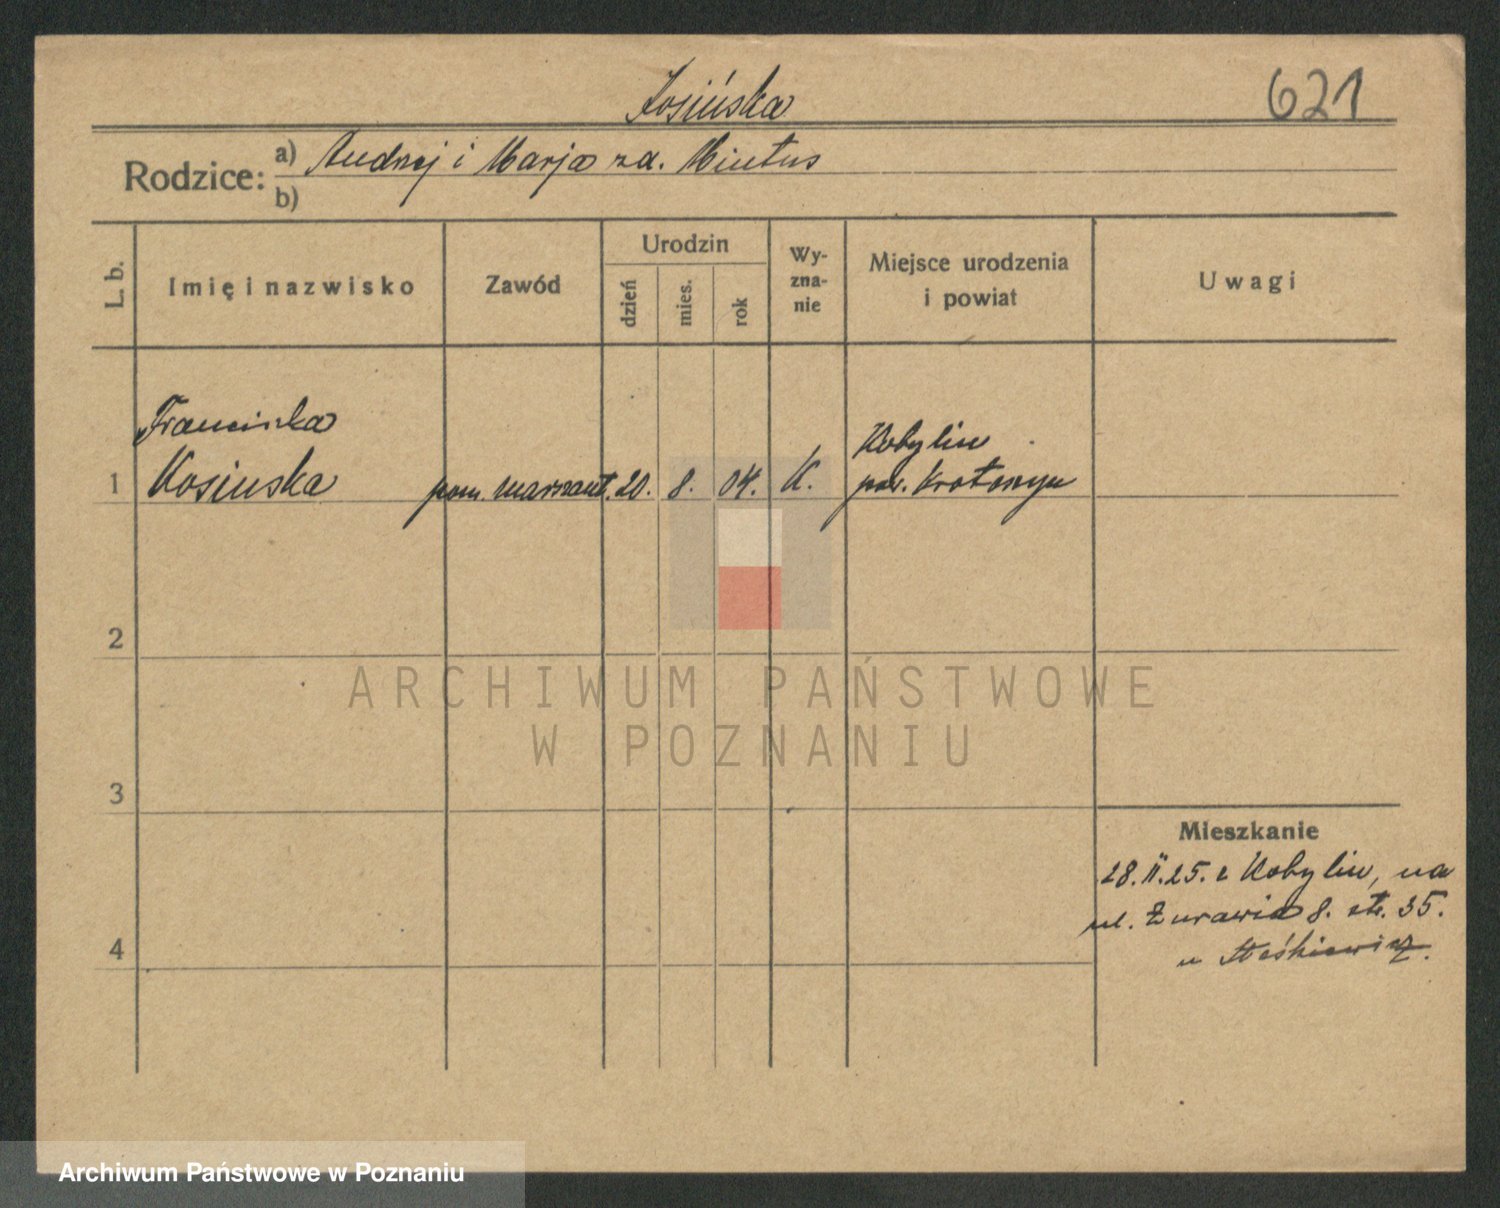 Kosińska
621
Rodzice: a) Andrzej i Marja zd. Mintus
b)
L. b. Imię i nazwisko Zawód Urodzin dzień mies. rok Wyznanie Miejsce urodzenia i powiat Uwagi
Franciszka Kobylin
1 Kosinska pom. 20. 8. 04. K. pow. Krotoszyn
2
ARCHIWUM PAŃSTWOWE
W POZNANIU
3
Mieszkanie
28.II.25. z Kobylin, na
ul. Żurawia 8. str. 35.
4 u
Archiwum Państwowe w Poznaniu